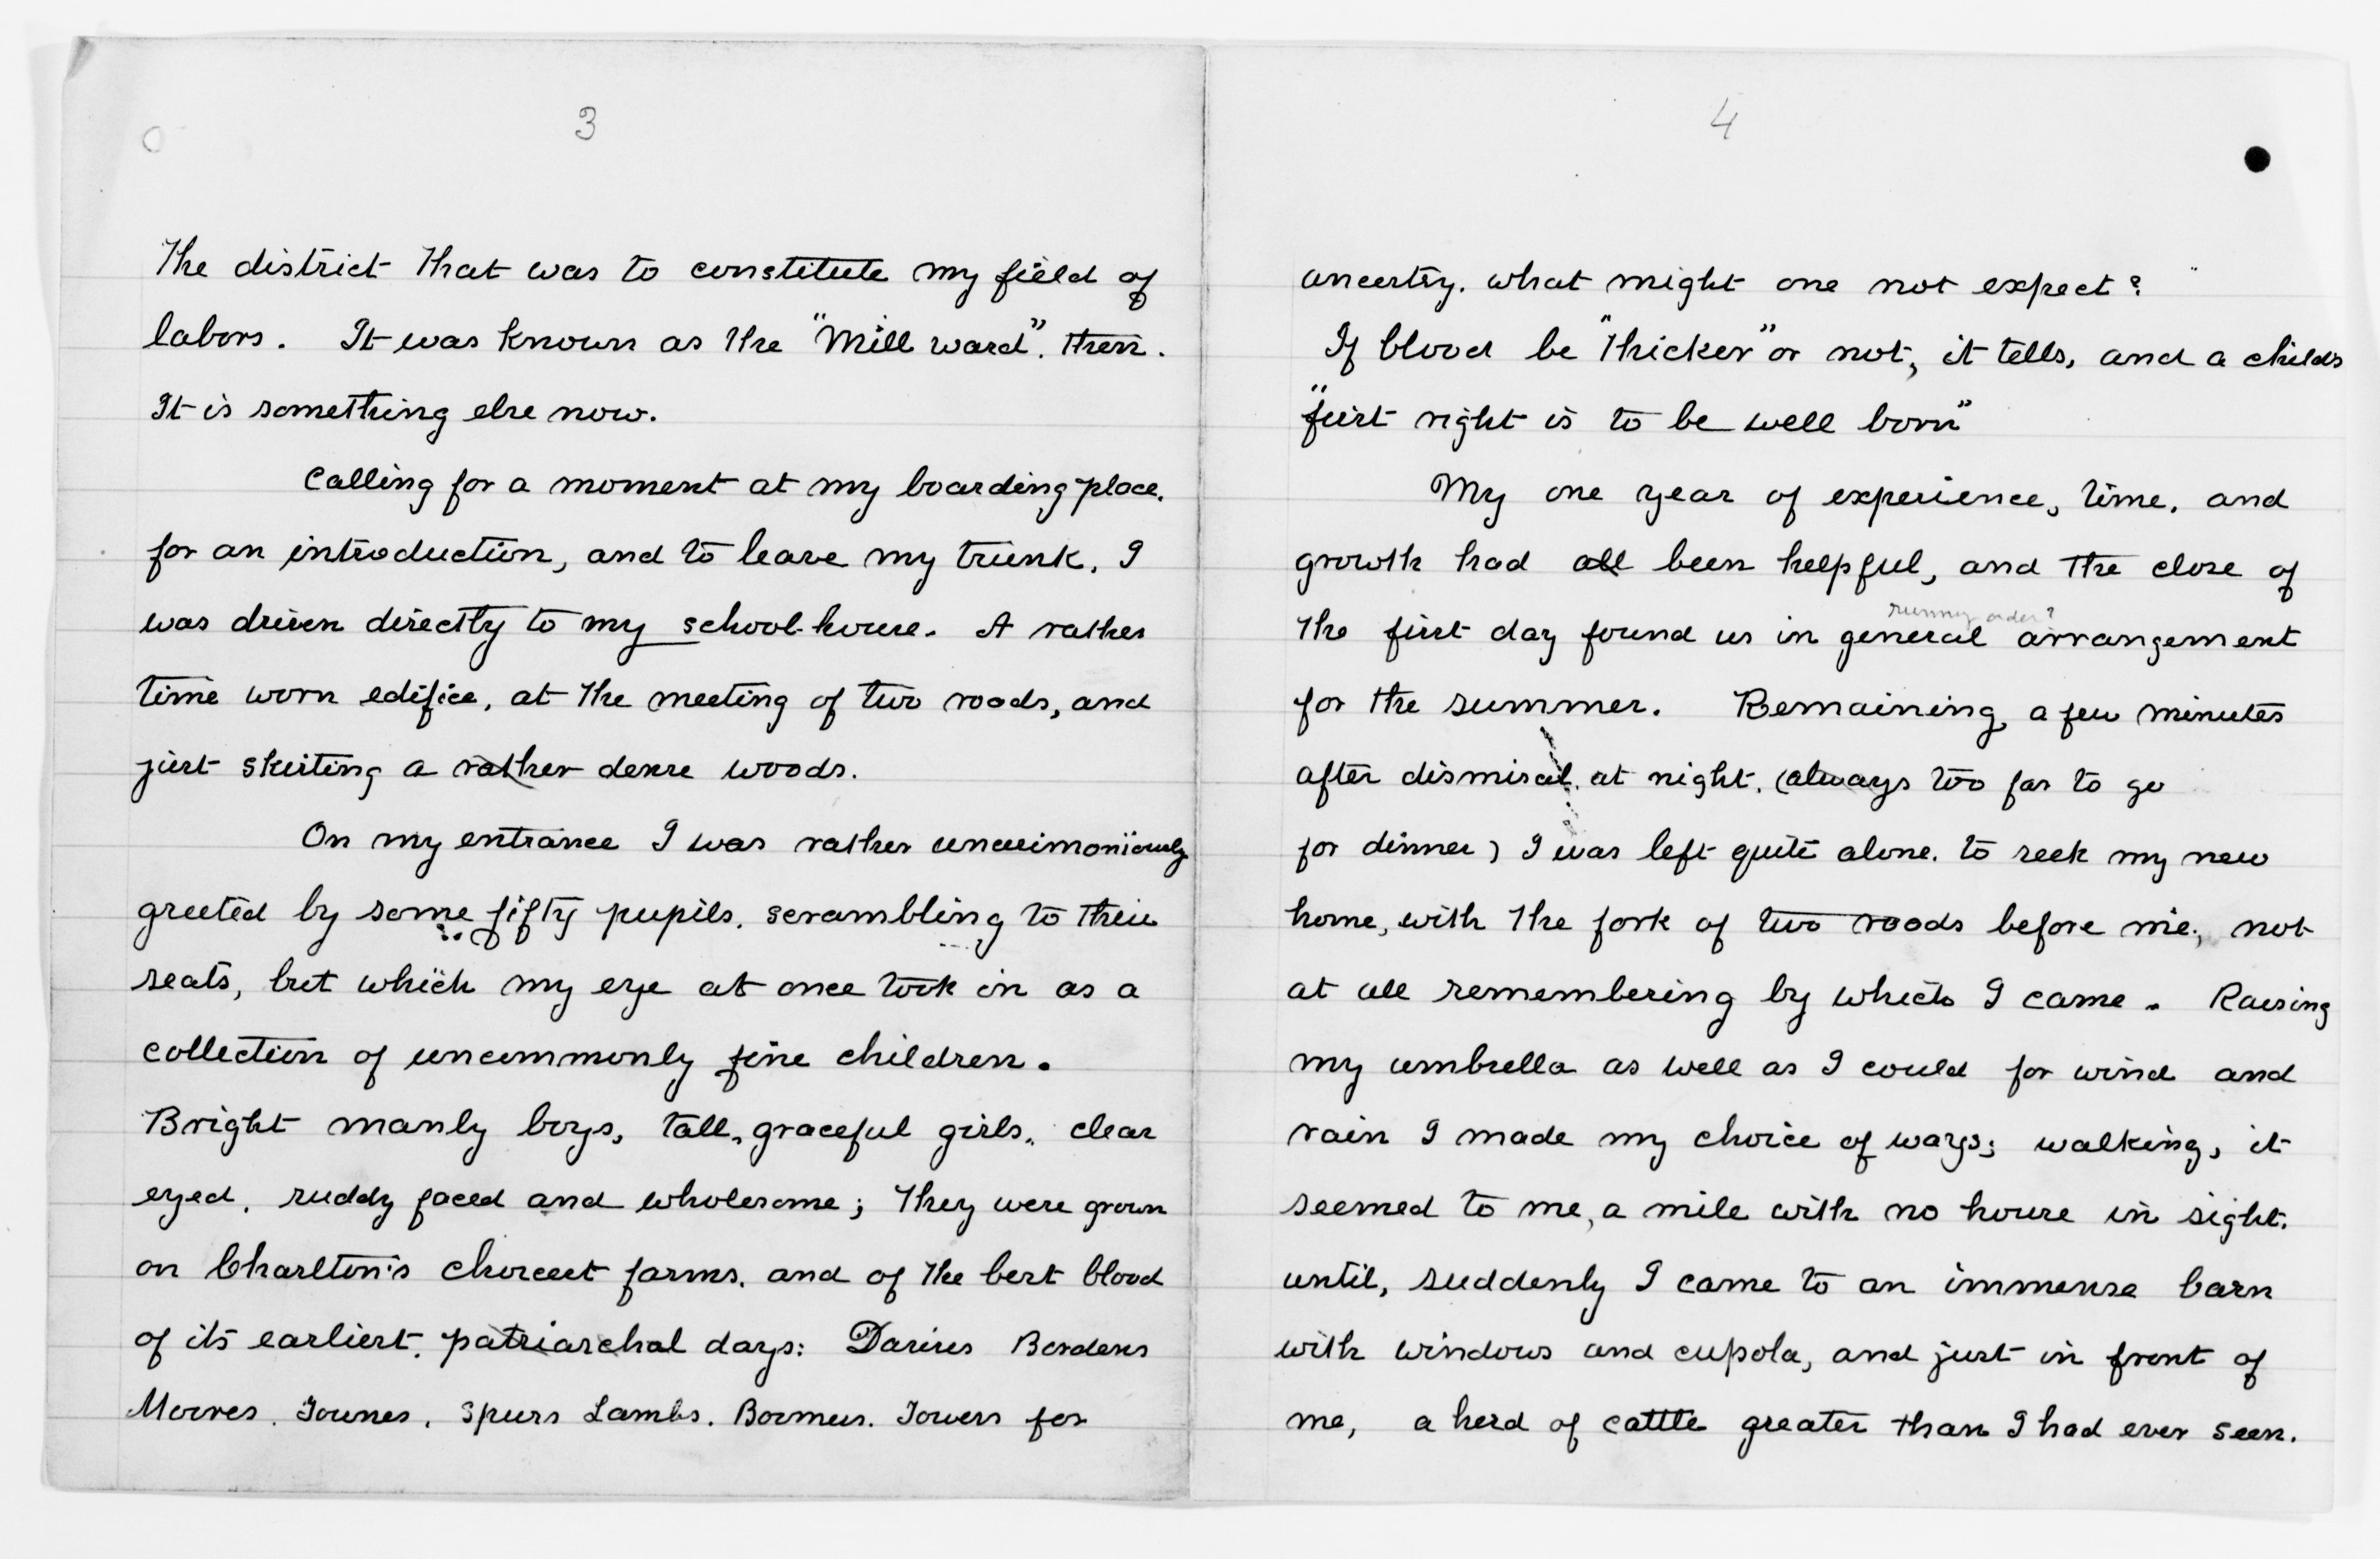 3
The district that was to constitute my field of
labors. It was known as the "Mill ward". then.
It is something else now.
Calling for a moment at my boarding place.
for an introduction, and to leave my trunk, I
was driven directly to my school-house. A rather
time worn edifice, at the meeting of two roads, and
just skirting a rather dense woods.
On my entrance I was rather uncerimoniously
greeted by some fifty pupils. scrambling to their
seats, but which my eye at once took in as a
collection of uncommonly fine children.
Bright manly boys, tall, graceful girls, clear
eyed, ruddy faced and wholesome; They were grown
on Charlton's choicest farms, and of the best blood
of its earliest, patriarchal days: Darius Bordens
Moores, Tounes, Spurs Lambs. Towers for
4
ancestry. what might one not expect?
If blood be "thicker" or not, it tells, and a childs
"first right is to be well born"
My one year of experience, time, and
growth had all been helpful, and the close of
running order?
the first day found us in general arrangement
for the summer. Remaining, a few minutes
after dismisal, at night, (always too far to go
for dinner) I was left quite alone. to seek my new
home, with the fork of two roads before me, not
at all remembering by which I came. Raising
my umbrella as well as I could for wind and
rain I made my choice of ways; walking, it
seemed to me, a mile with no house in sight.
until, suddenly I came to an immense barn
with windows and cupola, and just in front of
me, a herd of cattle greater than I had ever seen.